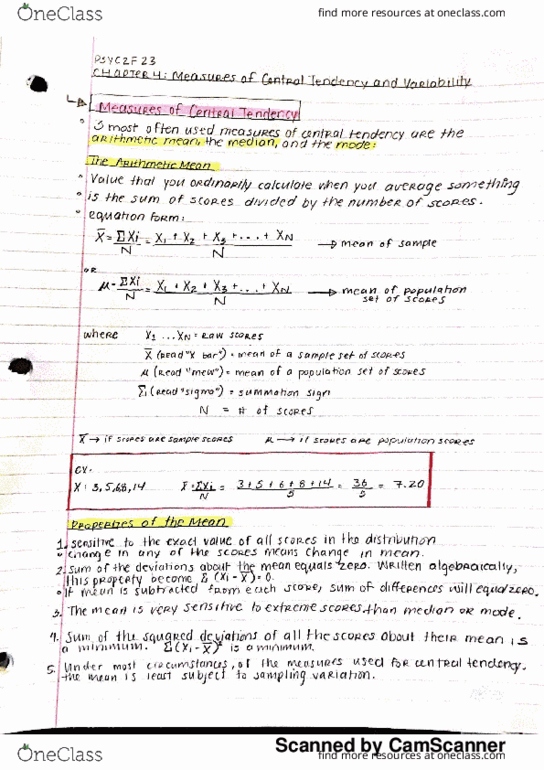 OneClass
find more resources at oneclass.com
PSYC2F23
CHAPTER 4: Measures of Central Tendency and Variability
Measures of Central Tendency
3 most often used measures of central tendency are the
arithmetic mean, the median, and the mode:
The Arithmetic Mean
Value that you ordinarily calculate when you average something
is the sum of scores divided by the number of scores.
equation form:
X̄ = ΣXi/N = X1 + X2 + X3 + ... + XN/N → mean of sample
OR
μ = ΣXi/N = X1 + X2 + X3 + ... + XN/N → mean of population
set of scores
where X1 ... XN = raw scores
X̄ (Read "X bar") = mean of a sample set of scores
μ (Read "mew") = mean of a population set of scores
Σ (Read "sigma") = summation sign
N = # of scores
X̄ → if scores are sample scores μ → if scores are population scores
ex.
X: 3, 5, 6, 8, 14 X̄ = ΣXi/N = 3+5+6+8+14/5 = 36/5 = 7.20
Properties of the Mean
1. sensitive to the exact value of all scores in the distribution
change in any of the scores means change in mean.
2. sum of the deviations about the mean equals zero. Written algebraically,
this property become Σ (Xi - X̄) = 0.
If mean is subtracted from each score, sum of differences will equal zero.
3. The mean is very sensitive to extreme scores, than median or mode.
4. Sum of the squared deviations of all the scores about their mean is
a minimum. Σ(Xi - X̄)² is a minimum.
5. Under most circumstances, of the measures used for central tendency.
the mean is least subject to sampling variation.
Scanned by CamScanner
OneClass
find more resources at oneclass.com